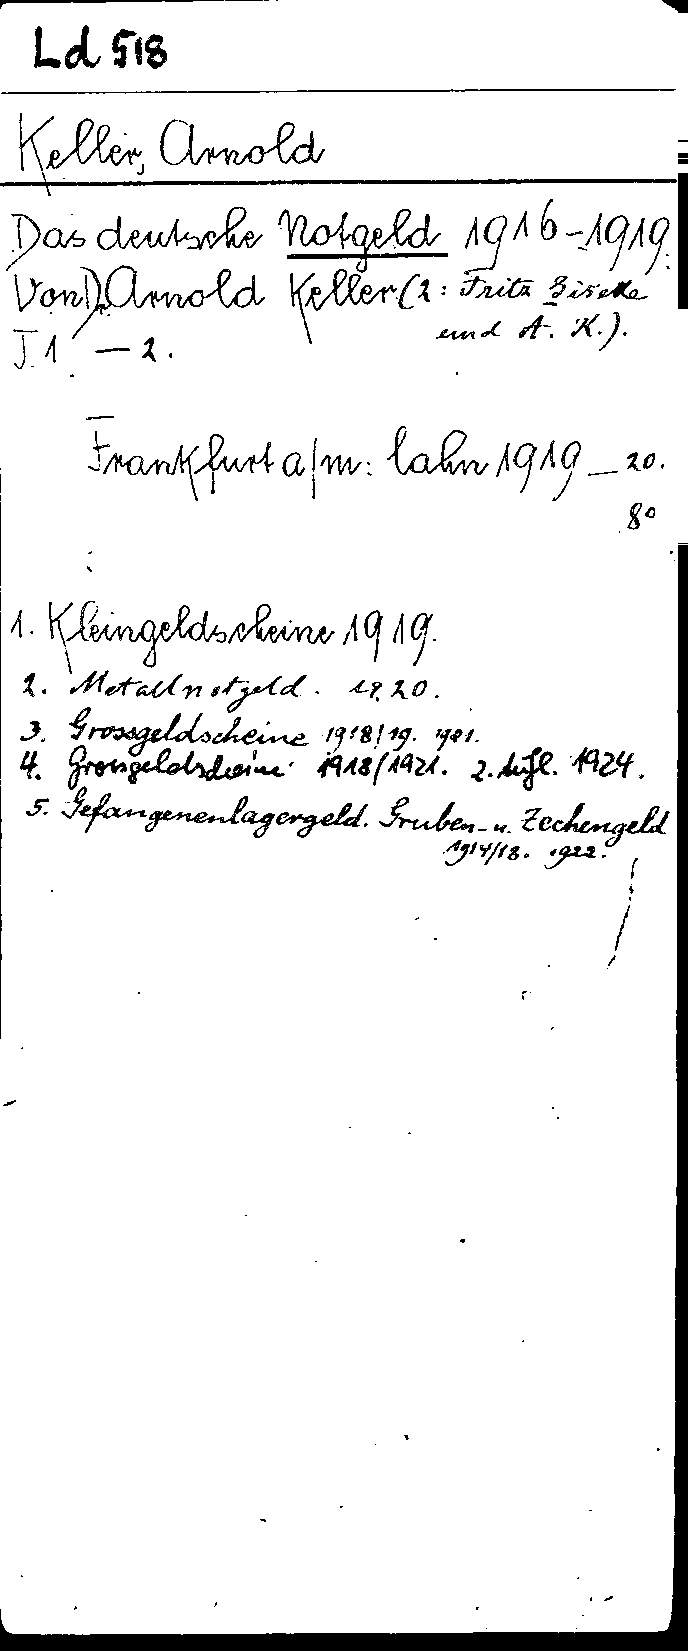 Ld 518
Keller, Arnold
Das deutsche Notgeld 1916-1919.
Von Dr. Arnold Keller (2: Fritz
und A. K.).
T. 1. — 2.
Frankfurt a/m: Lahn 1919 – 20.
8°
1. Kleingeldscheine 1919.
2. Metallnotgeld. 1920.
3. Grossgeldscheine 1918/19. 1921.
4. Grossgeldscheine 1918/1921. 2. Aufl. 1924.
5. Gefangenenlagergeld. Gruben- u. Zechengeld
1914/18. 1922.